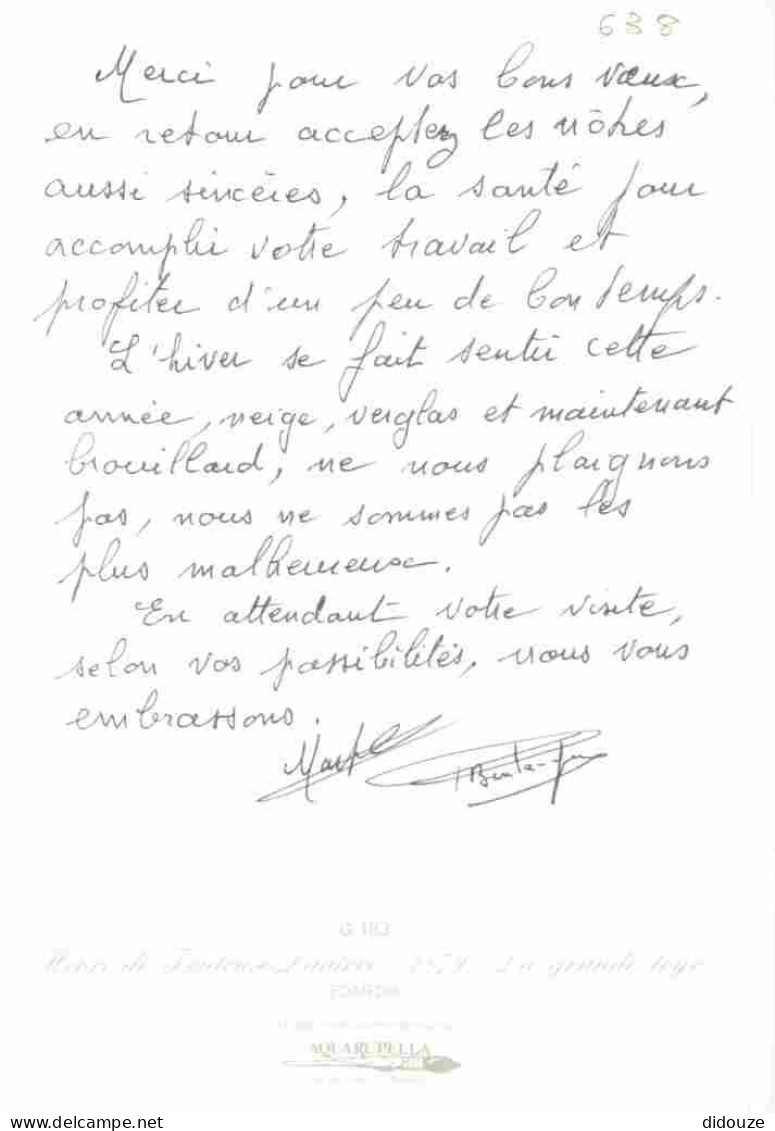 638
Merci pour vos bons vœux,
en retour acceptez les nôtres
aussi sincères, la santé pour
accomplir votre travail et
profiter d'un peu de bon temps.
L'hiver se fait sentir cette
année, neige, verglas et maintenant
brouillard, ne nous plaignons
pas, nous ne sommes pas les
plus malheureux.
En attendant votre visite,
selon vos possibilités, nous vous
embrassons.
G 183
La grande loge
AQUARUPELLA
didouze